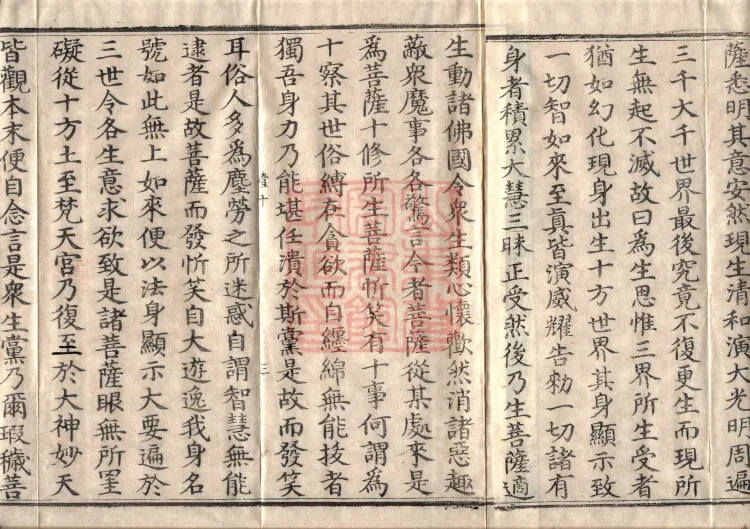 薩悉明其意安然現生清和演大光明周遍
三千大千世界最後究竟不復更生而現所
生無起不滅故曰為生思惟三界所生受者
猶如幻化現身出生十方世界其身顯示致
一切智如來至真皆演威耀告勑一切諸有
身者積累大慧三昧正受然後乃生菩薩適
生動諸佛國令衆生類心懷歡然消諸惡趣
蔽衆魔事各各驚言今者菩薩從某處來是
為菩薩十修所生菩薩忻笑有十事何謂為
十察其世俗縛在貪欲而自纏綿無能拔者
獨吾身力乃能堪任潰於斯黨是故而發笑
耳俗人多為塵勞之所迷惑自謂智慧無能
逮者是故菩薩而發忻笑自大遊逸我身名
號如此無上如來便以法身顯示大要遍於
三世令各生意求欲致是諸菩薩眼無所罣
礙從十方土至梵天宮乃復至於大神妙天
皆觀本末便自念言是衆生黨乃爾瑕穢菩